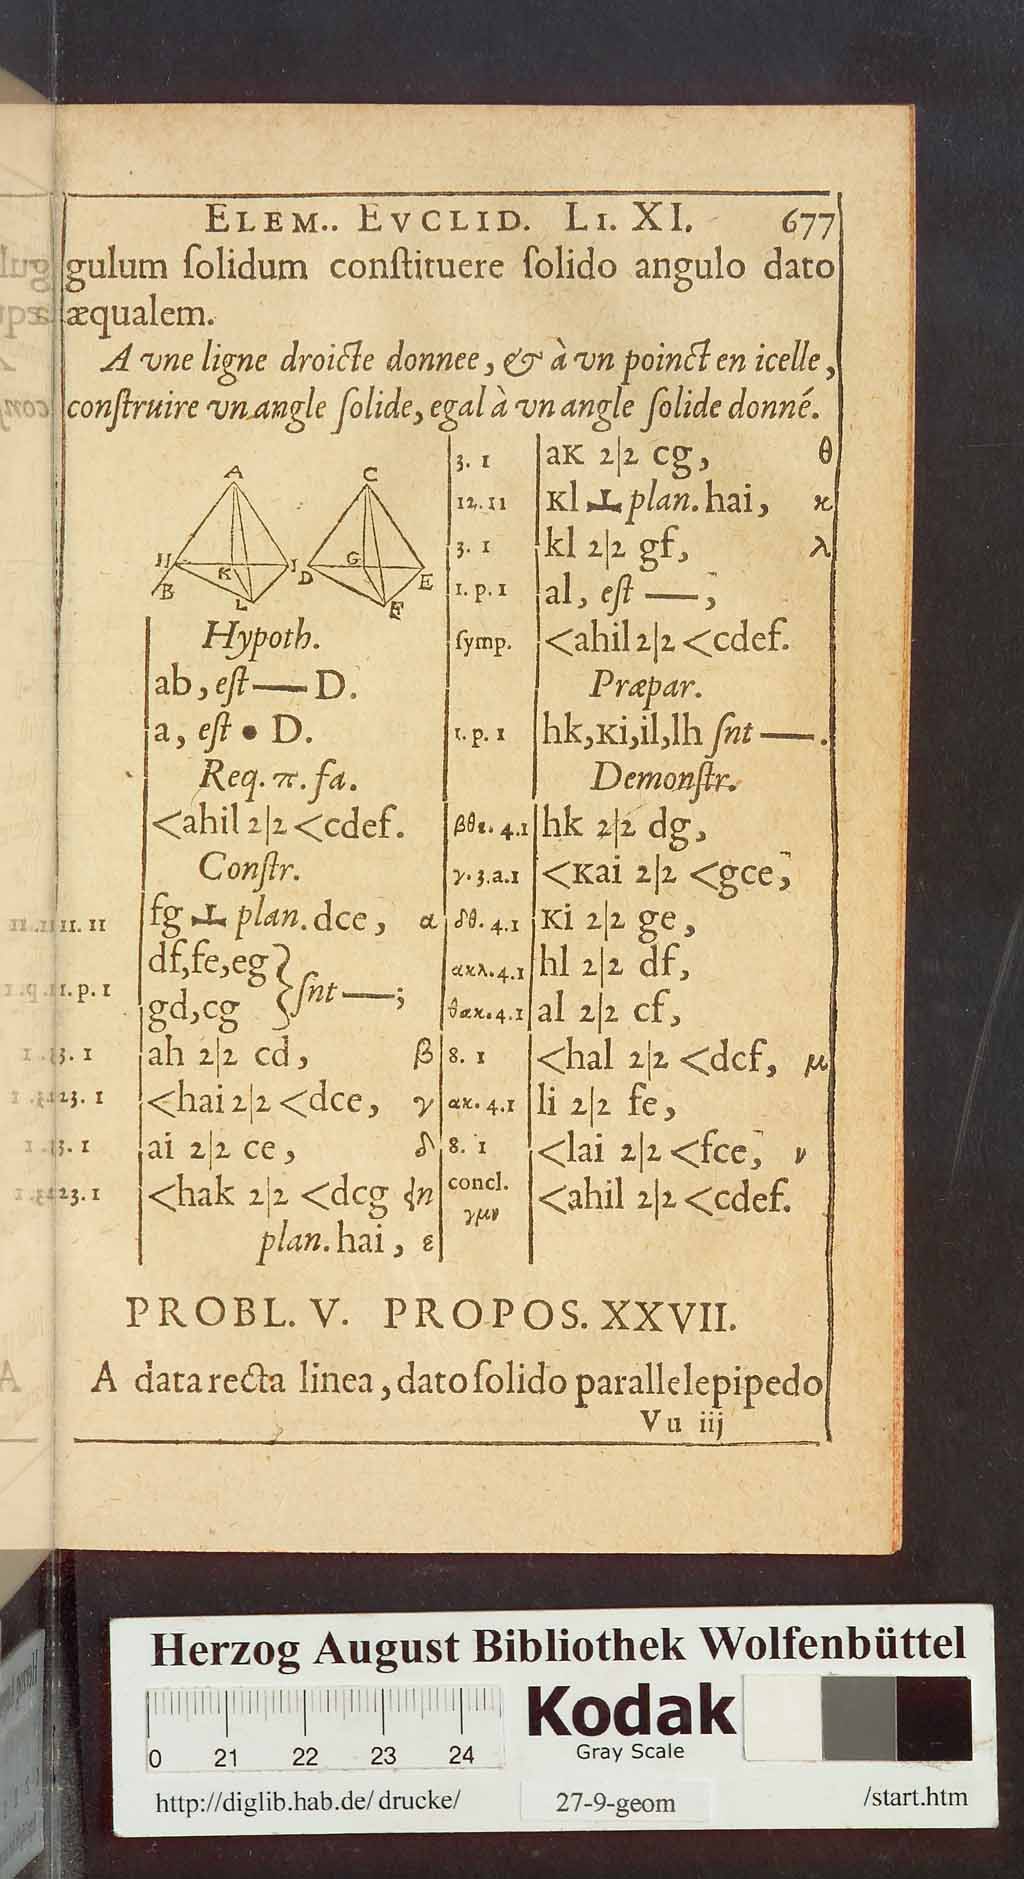 ELEM.. EVCLID. LI. XI. 677
gulum ſolidum conſtituere ſolido angulo dato
æqualem.
A vne ligne droicte donnee, & à vn poinct en icelle,
conſtruire vn angle ſolide, egal à vn angle ſolide donné.
A C
H K I D G E
B L F
Hypoth.
ab, eſt — D.
a, eſt • D.
Req. π. fa.
<ahil 2|2 <cdef.
Conſtr.
11. 11 fg ⊥ plan. dce, α
df,fe,eg
1. p. 1 gd,cg } ſnt —;
3. 1 ah 2|2 cd, β
23. 1 <hai 2|2 <dce, γ
3. 1 ai 2|2 ce, δ
23. 1 <hak 2|2 <dcg {n
plan. hai, ε
3. 1 aк 2|2 cg, θ
12. 11 кl ⊥ plan. hai, ϰ
3. 1 kl 2|2 gf, λ
1. p. 1 al, eſt —;
ſymp. <ahil 2|2 <cdef.
Præpar.
1. p. 1 hk,кi,il,lh ſnt —.
Demonſtr.
βθε. 4.1 hk 2|2 dg,
γ. 3.a.1 <кai 2|2 <gce;
δθ. 4.1 кi 2|2 ge,
αϰλ. 4.1 hl 2|2 df,
θαϰ. 4.1 al 2|2 cf,
8. 1 <hal 2|2 <dcf, μ
αϰ. 4.1 li 2|2 fe,
8. 1 <lai 2|2 <fce; ν
concl. γμν <ahil 2|2 <cdef.
PROBL. V. PROPOS. XXVII.
A data recta linea, dato ſolido parallelepipedo
Vu iij
Herzog August Bibliothek Wolfenbüttel
0 21 22 23 24
Kodak
Gray Scale
http://diglib.hab.de/drucke/ 27-9-geom /start.htm